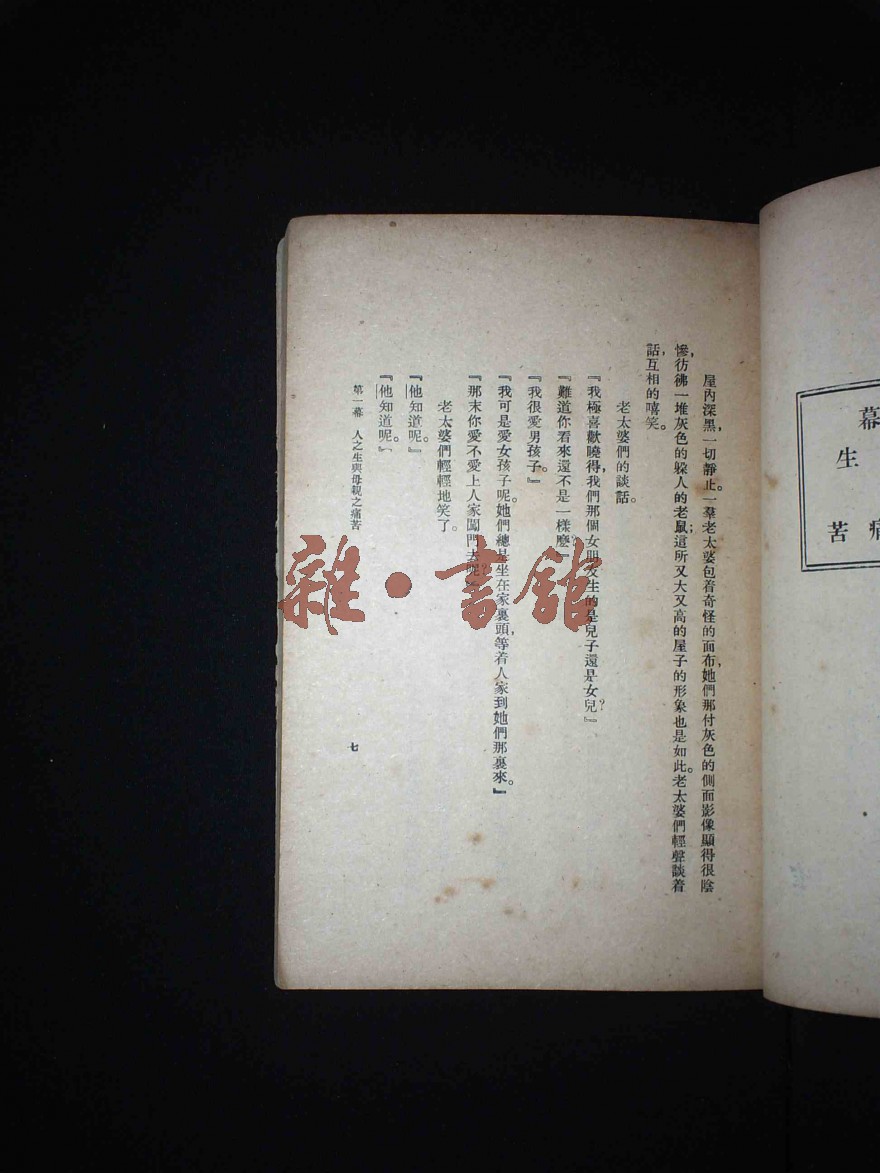 幕
生
痛
苦
屋內深黑,一切靜止。一羣老太婆包着奇怪的面布,她們那付灰色的側面影像顯得很陰
慘,彷彿一堆灰色的躲人的老鼠;這所又大又高的屋子的形象也是如此。老太婆們輕聲談着
話,互相的嘻笑。
老太婆們的談話。
『我極喜歡曉得,我們那個女朋友生的是兒子還是女兒?』
『難道你看來還不是一樣麼?』
『我很愛男孩子。』
『我可是愛女孩子呢。她們總是坐在家裏頭,等着人家到她們那裏來。』
『那末你愛不愛上人家闖門去呢?
老太婆們輕輕地笑了。
『他知道呢。』
『他知道呢。』
第一幕 人之生與母親之痛苦
七
雜·書館